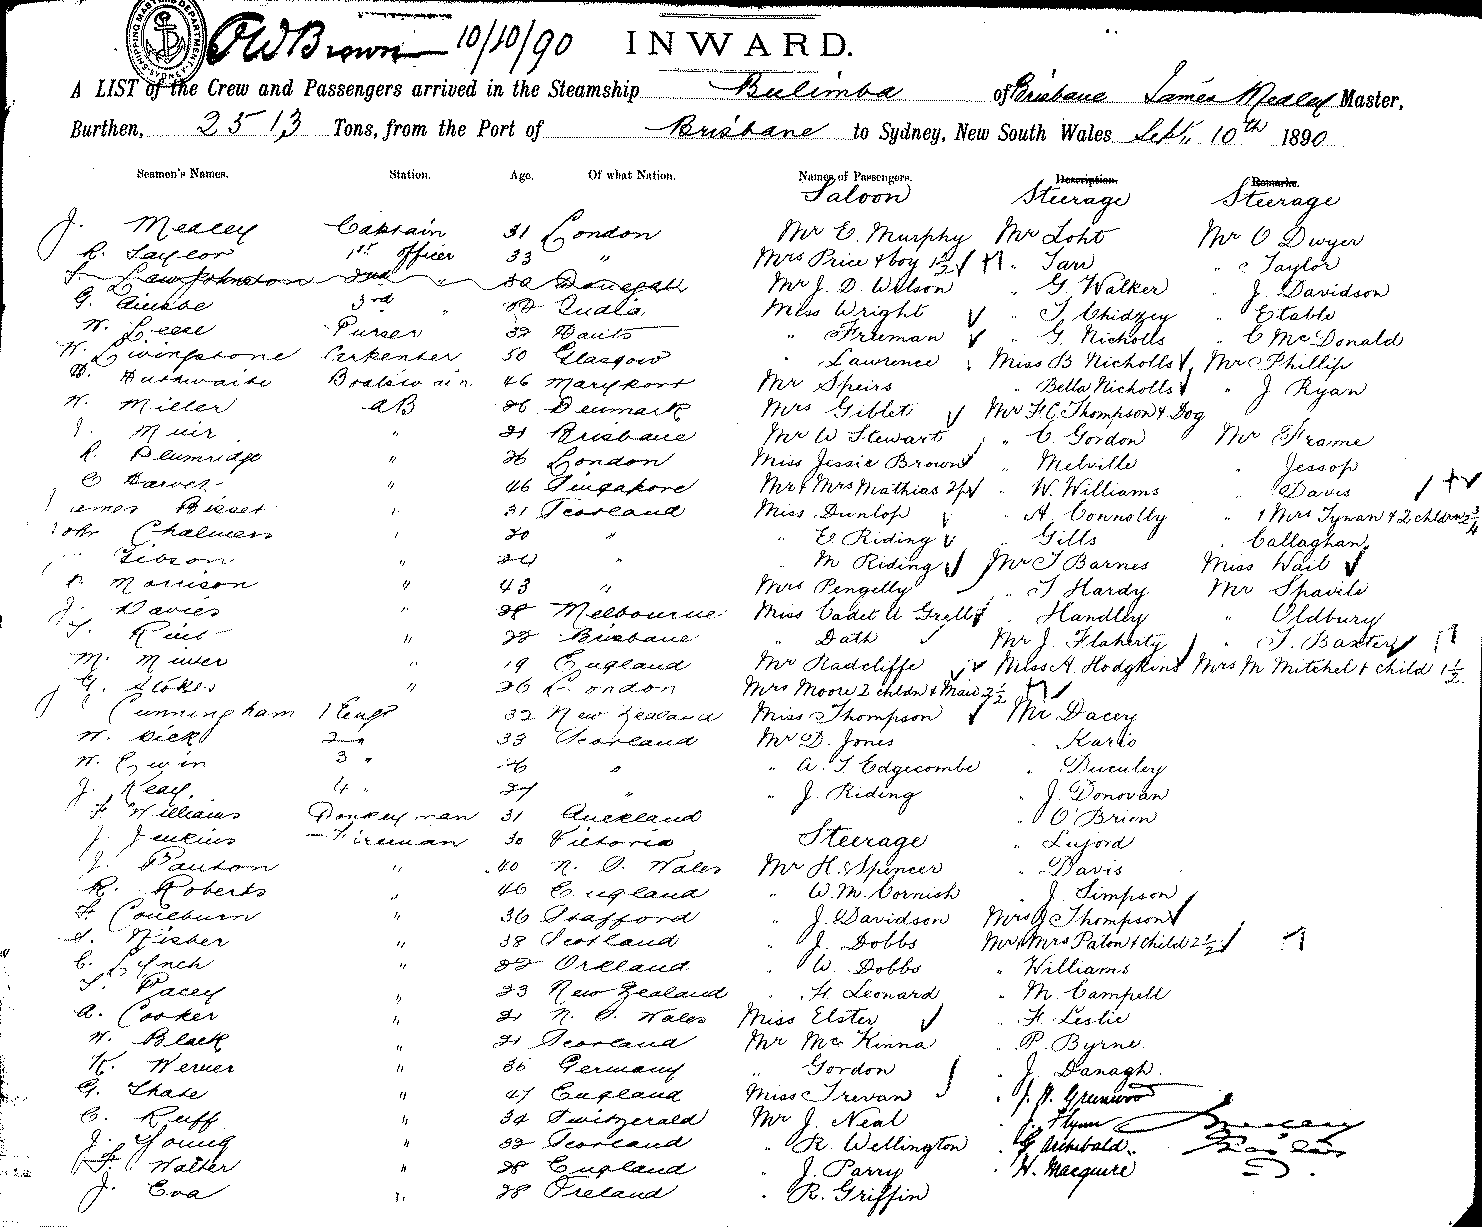 SHIPPING MASTERS DEPARTMENT SYDNEY
AWBrown 10/10/90 INWARD.
A LIST of the Crew and Passengers arrived in the Steamship Bulimba of Brisbane James Medley Master,
Burthen, 2513 Tons, from the Port of Brisbane to Sydney, New South Wales Sept. 10th 1890
Seamen's Names. Station. Age. Of what Nation. Names of Passengers. Description. Remarks.
Saloon Steerage Steerage
J. Medley Captain 31 London Mr E. Murphy Mr Loht Mr O Dwyer
R. Taylor 1st officer 33 " Mrs Price & boy 1 1/2 " Tarr " Taylor
Johnston 2nd " 30 Mr J. D. Wilson " G. Walker " J. Davidson
G. 3rd " India Miss Wright " T. Chidzey " Etable
W. Leese Purser 32 Hants " Freeman " G. Nicholls " C McDonald
W. Livingstone Carpenter 50 Glasgow " Lawrence Miss B Nicholls Mr Phillip
Boatswain 46 Maryport Mr Speirs " Bella Nicholls " J Ryan
W. Miller AB 26 Denmark Mrs Giblet Mr F.C. Thompson & Dog
J. Muir " 21 Brisbane Mr W Stewart " C. Gordon Mr Frame
R. Plumridge " 26 London Miss Jessie Brown " Melville " Jessop
C Harvey " 46 Singapore Mr & Mrs Mathias 2 " W. Williams " Davis
James Bisset " 31 Scotland Miss Dunlop " A. Connolly " Mrs Tynan & 2 chldrn 2 3/4
John Chalmers " 20 " " E Riding " Gills " Callaghan
Gibson 24 " " M Riding Mr T Barnes Miss Wail
Morrison " 43 " Mrs Pengelly " T Hardy Mr Spavile
J. Davies " 28 Melbourne Miss Cadet A Grell " Handley " Oldbury
T. " 22 Brisbane " Dath Mr J. Flaherty " T. Baxter
M. " 19 England Mr Radcliffe Miss A. Hodgkins Mrs M Mitchel & child 1 1/2
G. Stokes " 26 London Mrs Moore 2 chldn & Maid 2 1/2
Cunningham 1 Engr 32 New Zealand Miss Thompson Mr Dacey
W. Dick 2 " 33 Scotland Mr D. Jones " Karlo
W. Gwin 3 " 26 " " A. T Edgecombe " Buculey
J. Keay 4 " 27 " " J. Riding " J. Donovan
F. Williams Donkeyman 31 Auckland " O'Brien
J. Jenkins Fireman 30 Victoria Steerage " Lujord
J. " 40 N. S. Wales Mr H. Spencer " Davis
R. Roberts " 40 England " W. M. Cornish " J. Simpson
F. Coulburn " 36 Stafford " J. Davidson Mrs J Thompson
S. Nisber " 38 Scotland " J. Dobbs Mr & Mrs Paton & child 2 1/2
C. Lynch " 22 Orkland " W. Dobbs " Williams
T. Pacey " 23 New Zealand " H. Leonard " M. Campell
A. Cooker " 21 N. S. Wales Miss Elster " F. Leslie
W. Black " 21 Scotland Mr McKinna " P. Byrne
K. Werner " 36 Germany " Gordon " J. Danagh
G. Thate " 47 England Miss Trevan " J. H. Greenwood
C. Ruff " 34 Switzerald Mr J. Neal " J. Flynn J Medley
J. Young " 32 Scotland " R. Wellington " G Archibald Master
F. Walter " 28 England " J. Parry " H. Macquire
J. Eva " 28 Ireland " R. Griffin